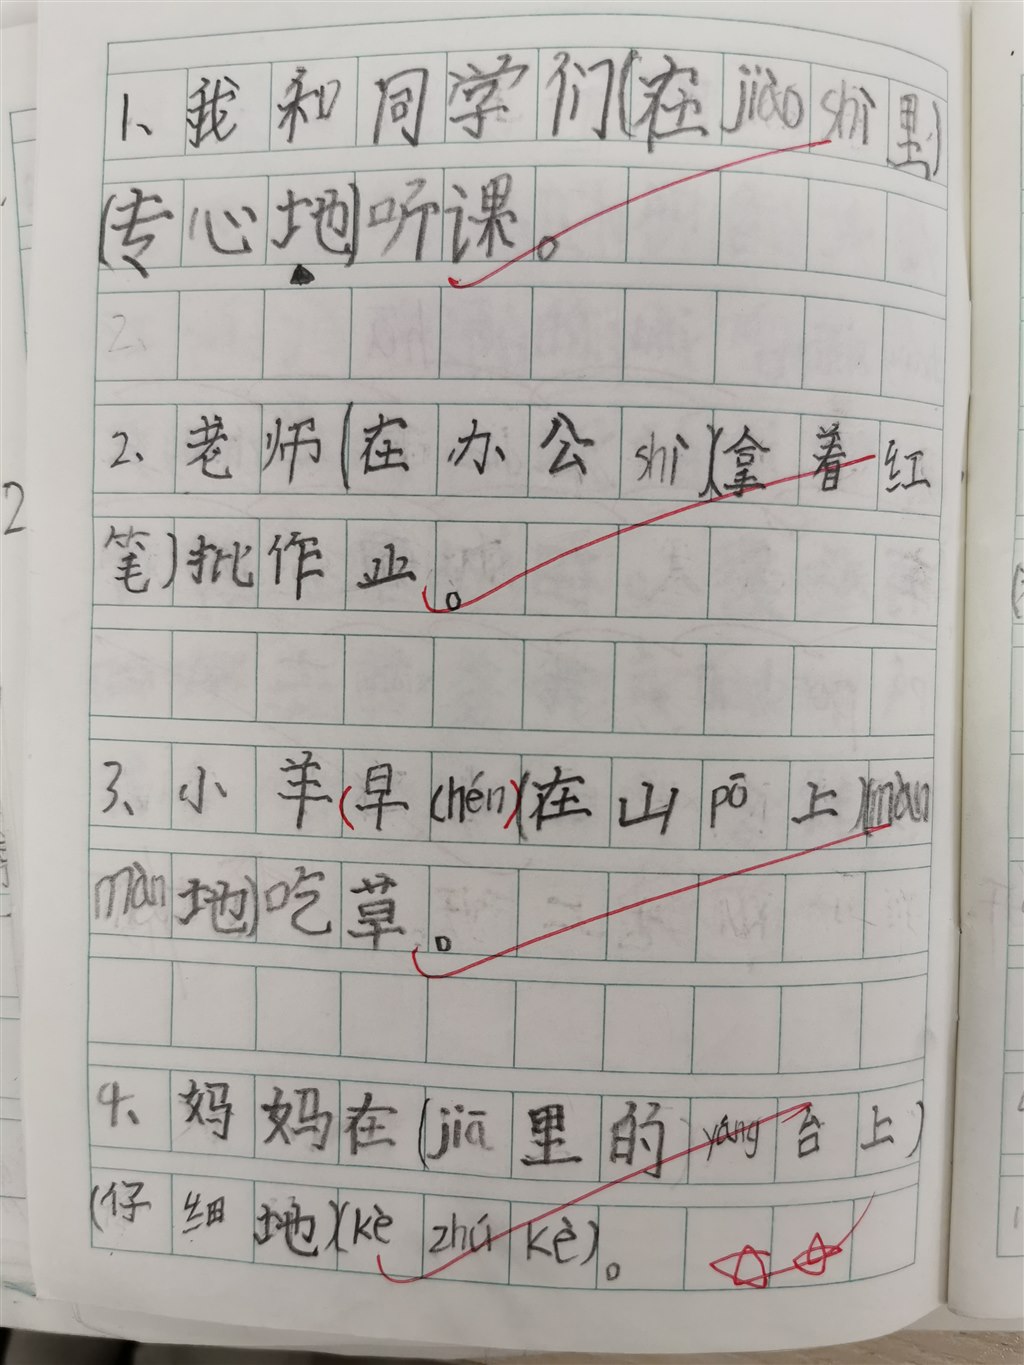 1、我和同学们(在jiào shì里)
(专心地)听课。
2、
2、老师(在办公shì)(拿着红
笔)批作业。
3、小羊(早chén)(在山pō上)(màn
màn地)吃草。
4、妈妈在(jiā里的yáng台上)
(仔细地)(kè zhú kè)。
2